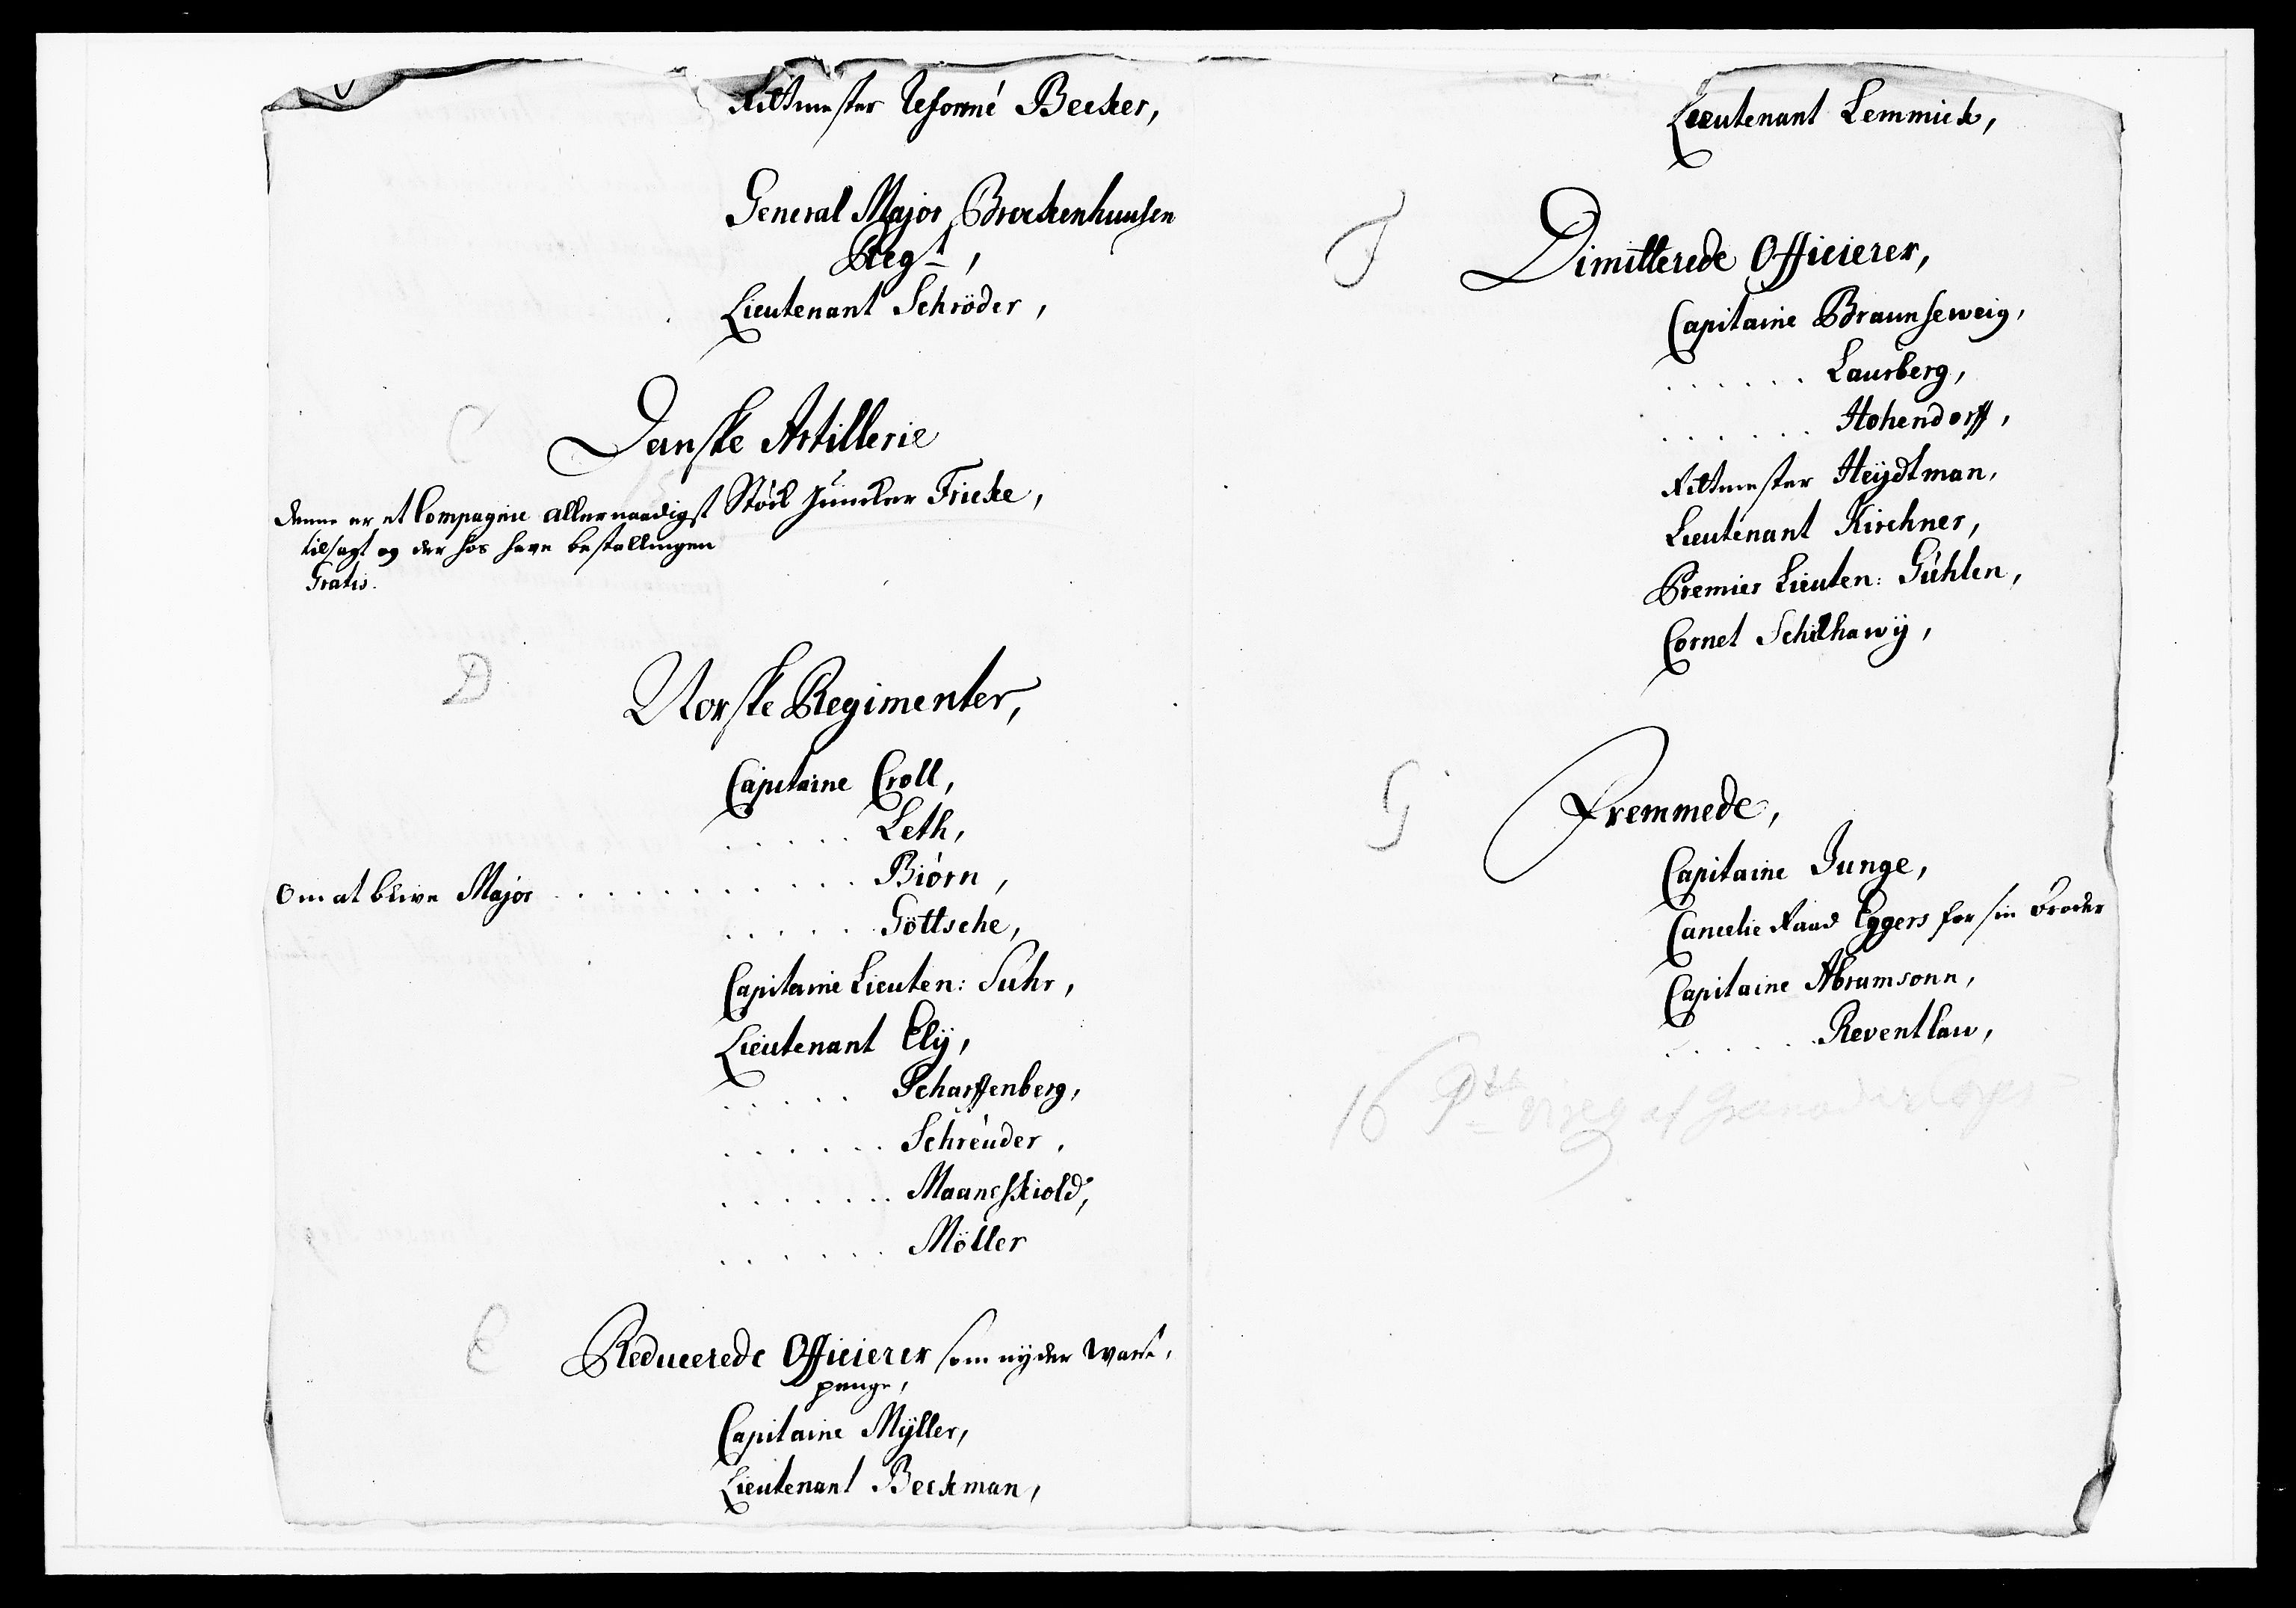 Rittmester Reformé Becker,
General Major Brockenhuusen
Regt,
Lieutenant Schröder,
C
Danske Artillerie
Stöck Juncker Fricke,
denne er et Compagnie allernaadigst
tilsagt og der hos have bestallingen
Gratis.
D
Norske Regimenter,
Capitaine Croll,
..... Leth,
Om at blive Major ........... Biörn,
..... Göttsche,
Capitaine Lieuten: Suhr,
Lieutenant Elÿ,
..... Scharffenberg,
...... Schreuder,
....... Maaneskiold,
...... Möller
E
Reducerede Officierer som nÿder Warte,
penge,
Capitaine Mÿller,
Lieutenant Beckman,
Lieutenant Lemmick,
F
Dimitterede Officierer,
Capitaine Braunseweig,
...... Laurberg,
...... Hohendorff,
Rittmester Heÿdtman,
Lieutenant Kirchner,
Premier Lieuten: Gühlen,
Cornet Schilhawÿ,
G
Fremmede,
Capitaine Junge,
Cancelie Raad Eggers for sin Broder
Capitaine Abramsonn,
...... Reventlau,
16